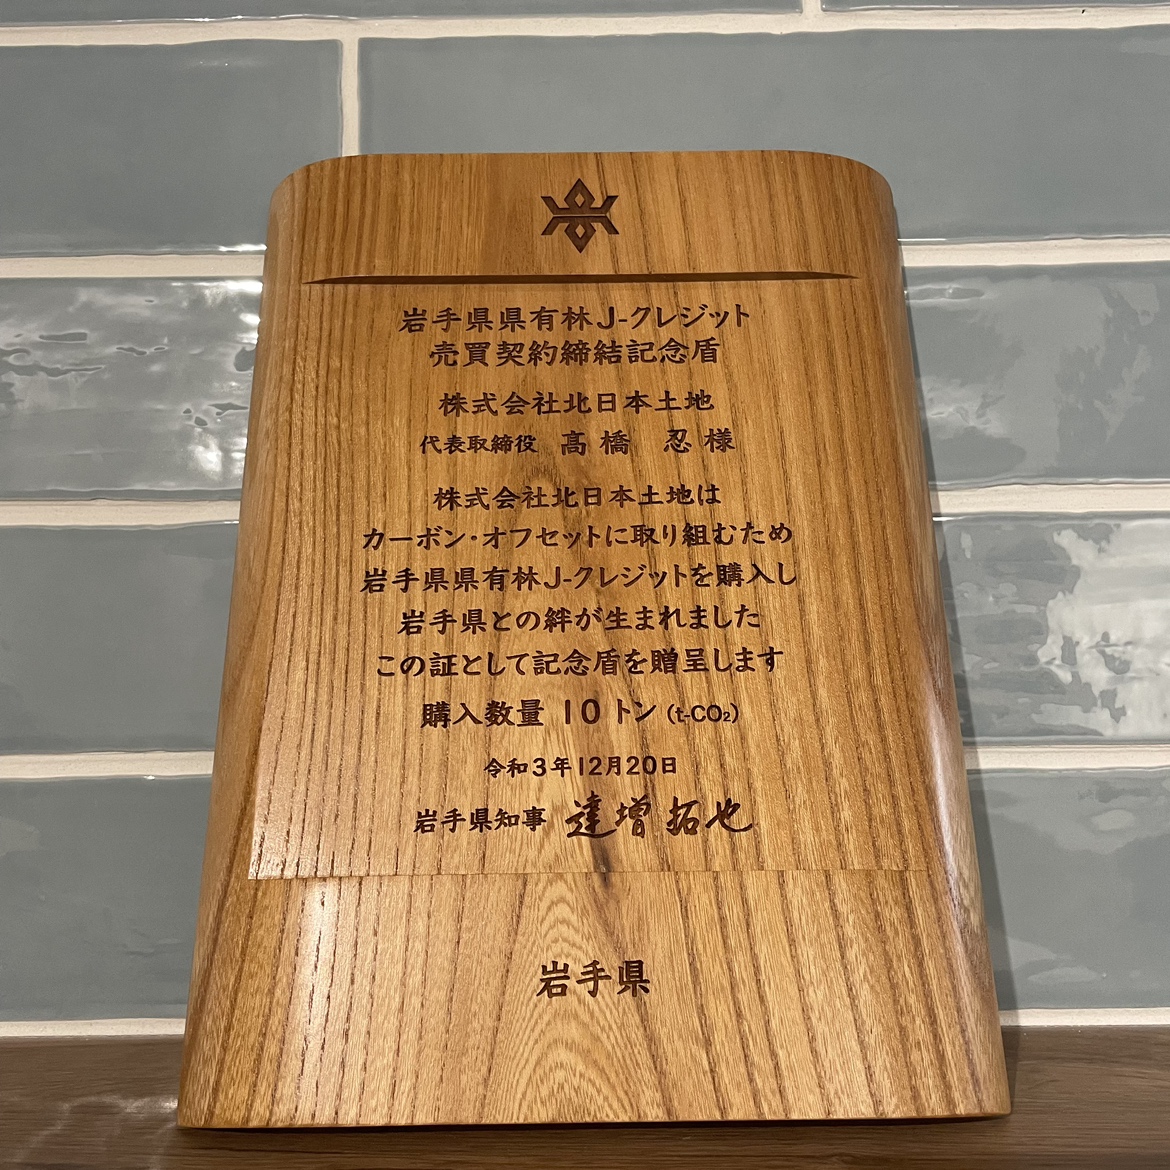 岩手県県有林J-クレジット
売買契約締結記念盾
株式会社北日本土地
代表取締役 髙橋 忍様
株式会社北日本土地は
カーボン・オフセットに取り組むため
岩手県県有林J-クレジットを購入し
岩手県との絆が生まれました
この証として記念盾を贈呈します
購入数量 10トン(t-CO₂)
令和3年12月20日
岩手県知事 達増拓也
岩手県